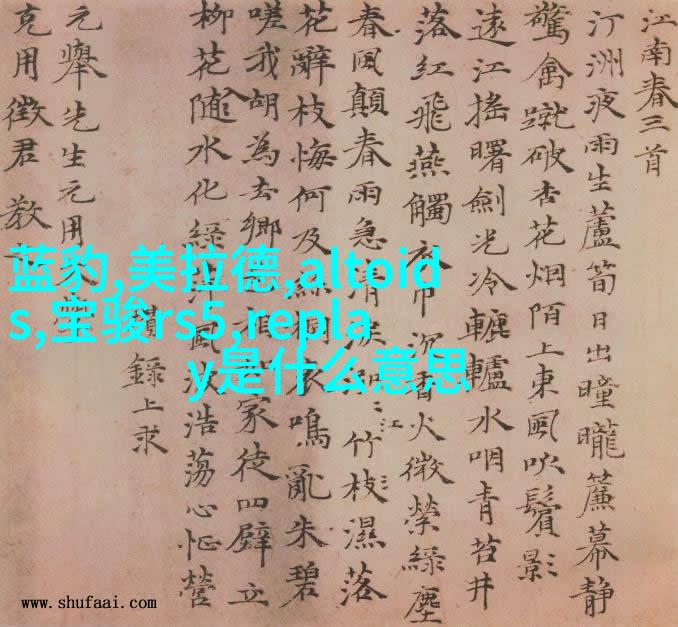 江南春三首
汀洲夜雨生蘆筍日出曈曨簾幕靜
驚禽蹴破杏花烟陌上東風吹鬢影
遠江搖曙劍光冷轆轤水咽青苔井
落紅飛燕觸衣巾沉香火微縈綠塵
春風顛春雨急清淚泓泓江竹枝濕落
花辭枝悔何及絲桐哀鳴亂朱碧
嗟我胡為去鄉相家徒四壁立
柳花隨水化綠萍風波浩蕩心怔營
錄上求
元舉先生元用
克用徵君教
蓝豹,美拉德,altoid
s,宝骏rs5,repla
y是什么意思
www.shufaai.com